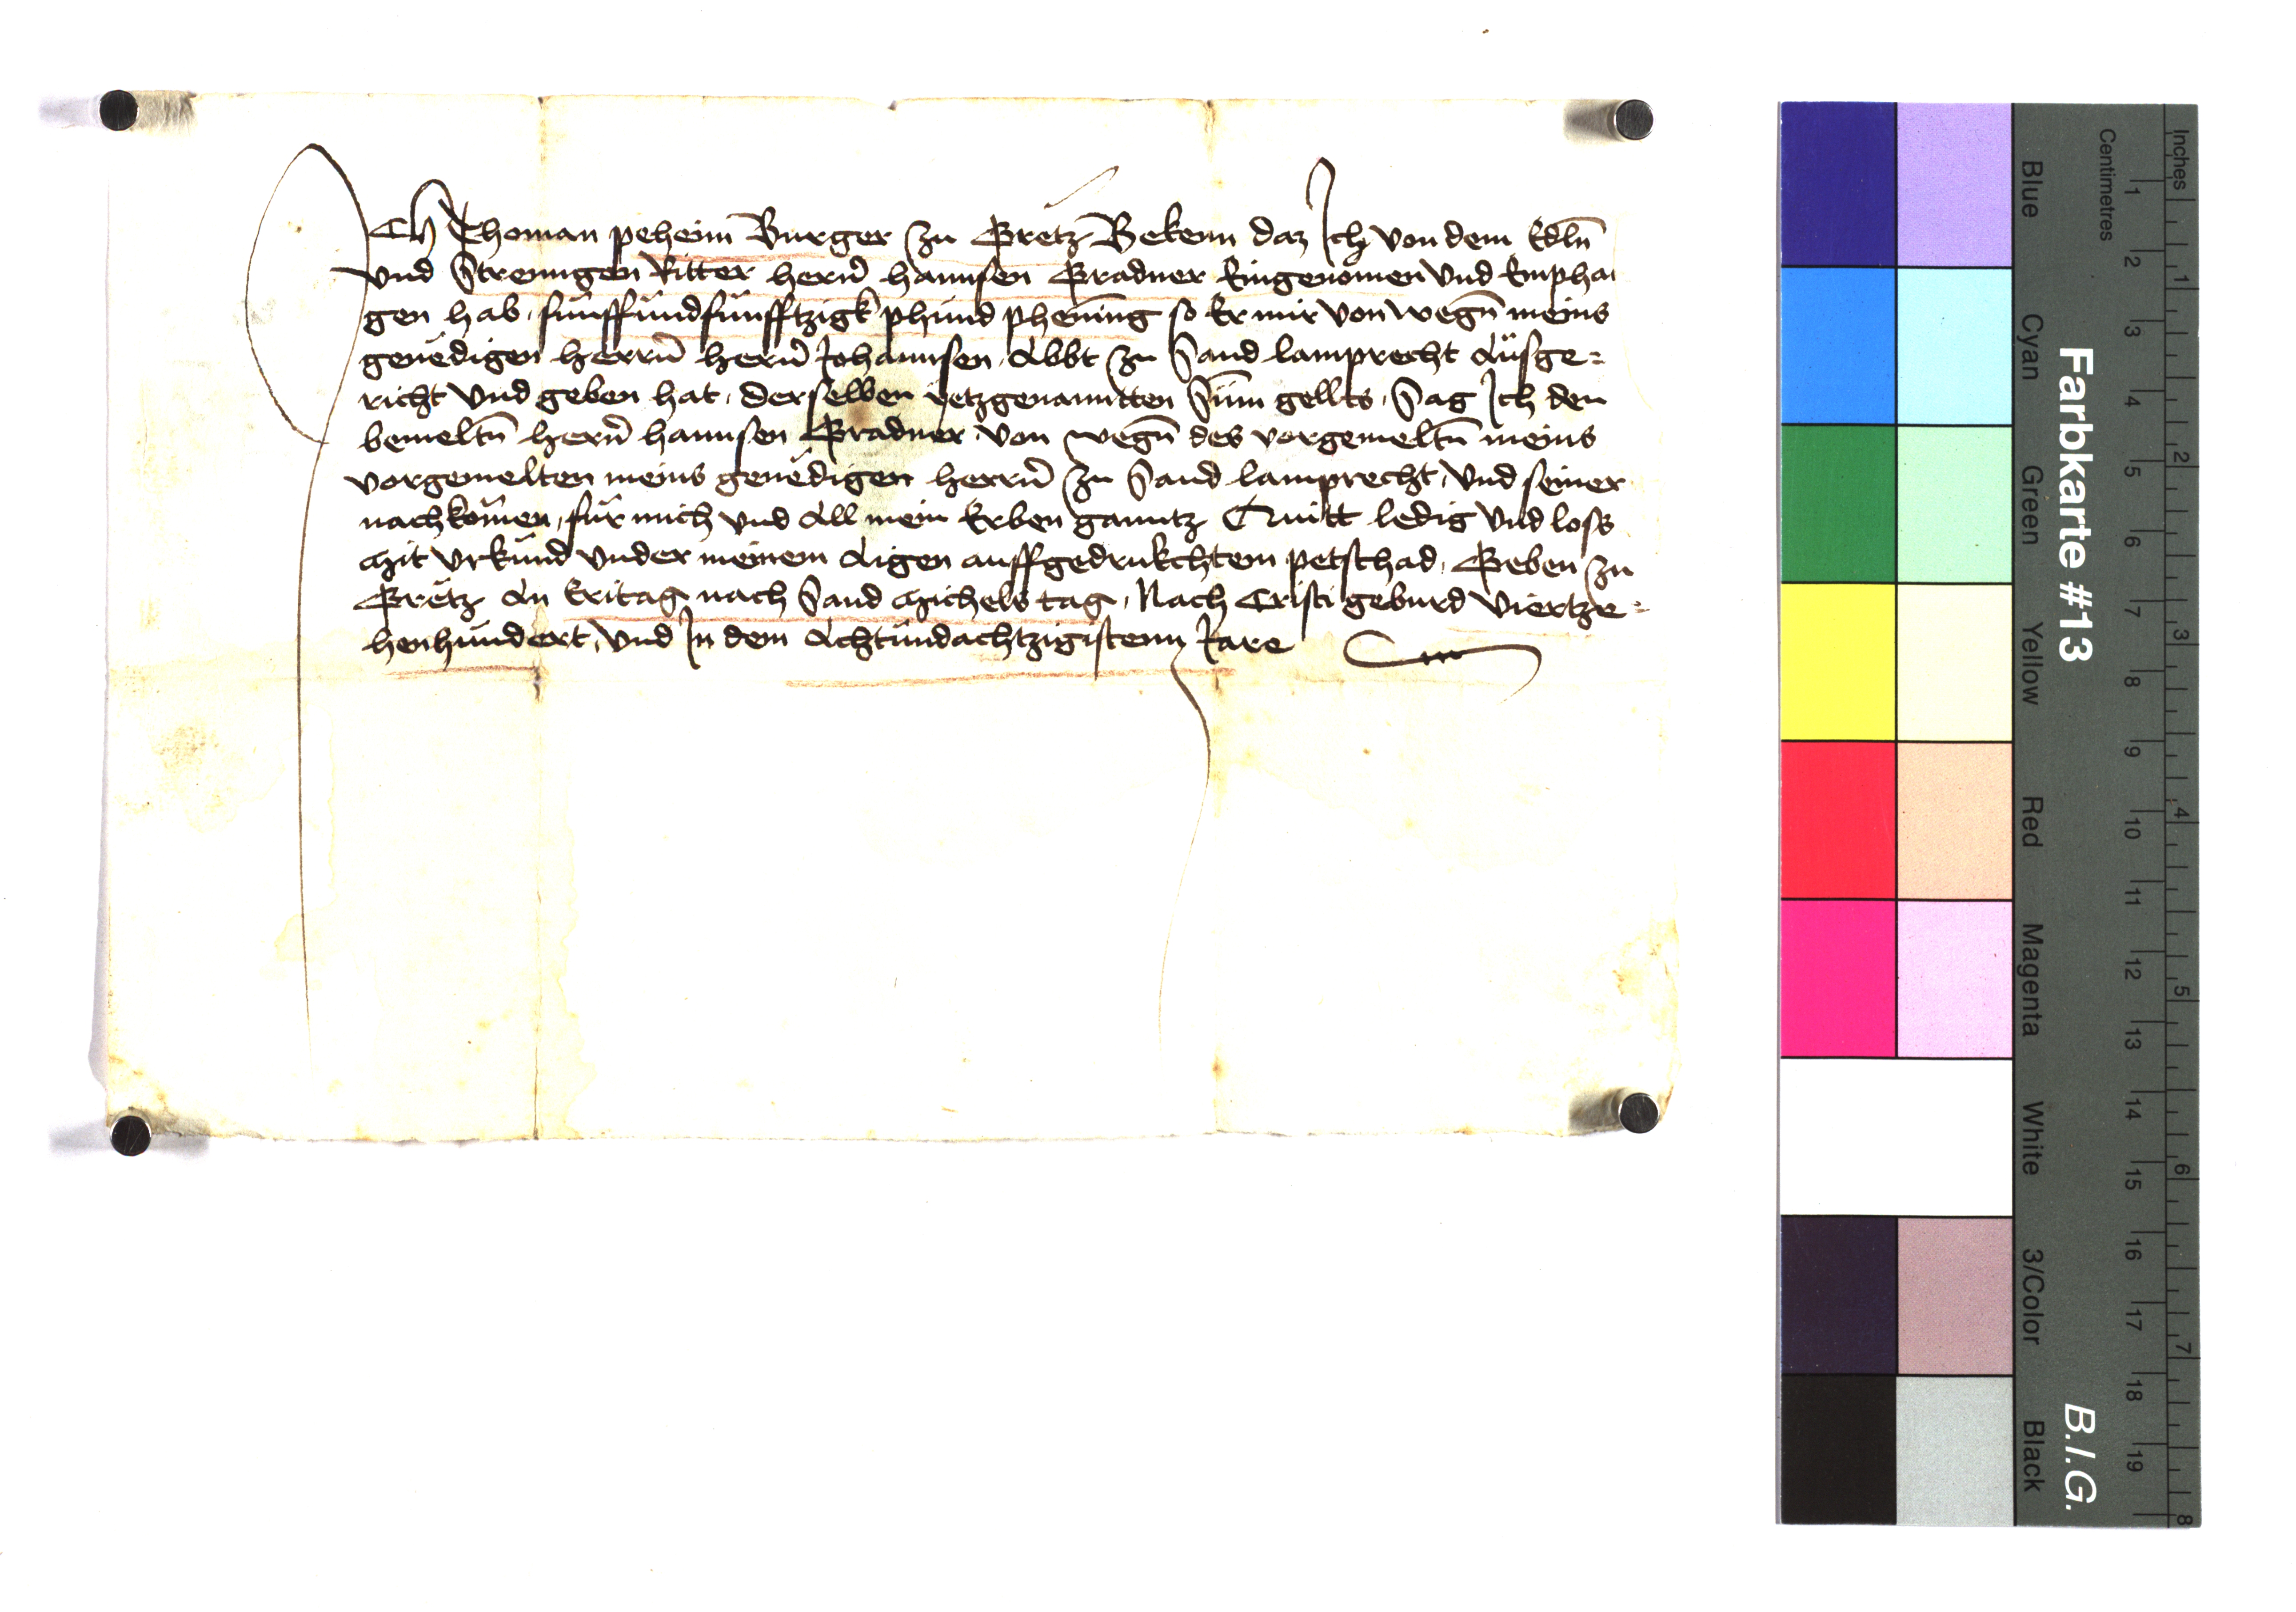 Ich Thoman peheim Burger zu Gretz Bekenn daz Ich von dem Edln̄
vnd Strenngen Ritter herrn̄ hannsen Gradner Eingenomen vnd Emphan
gen hab, funffundfunfftzigk phund phening so Er mir von wegn̄ meins
genedigen herrn̄ hern̄ Johannsen, Abbt zu Sand lamprecht Ausge=
richt vnd geben hat, derselben yetzgenanntten Sum gellts, Sag Ich den
bemeltn̄ hern̄ hannsen Gradner, von wegn̄ des vorgemeltn̄ meins
vorgemelten meins genedigen herrn̄ zu Sand lamprecht, vnd seiner
nachkomen, fur mich vnd All mein Erben ganntz Quitt ledig vnd loss
Mit vrkund vnder meinem Aigen auffgedrukchtem petschad, Geben zu
Gretz An Eritag nach Sand Michels tag, Nach Cristi geburd viertze=
henhundert, vnd In dem Achtundachtzigistenn Jare
Farbkarte #13
B.I.G.
Inches
Centimetres
1 2 3 4 5 6 7 8 9 10 11 12 13 14 15 16 17 18 19
1 2 3 4 5 6 7 8
Blue
Cyan
Green
Yellow
Red
Magenta
White
3/Color
Black